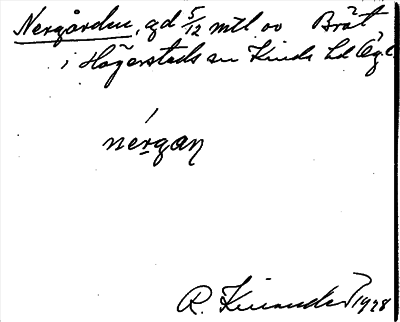 Nergården, gd 5/12 mtl oo Brät
i Hägerstads sn Kinds hd Ögl.
nérgaɳ
R. Kinander 1928